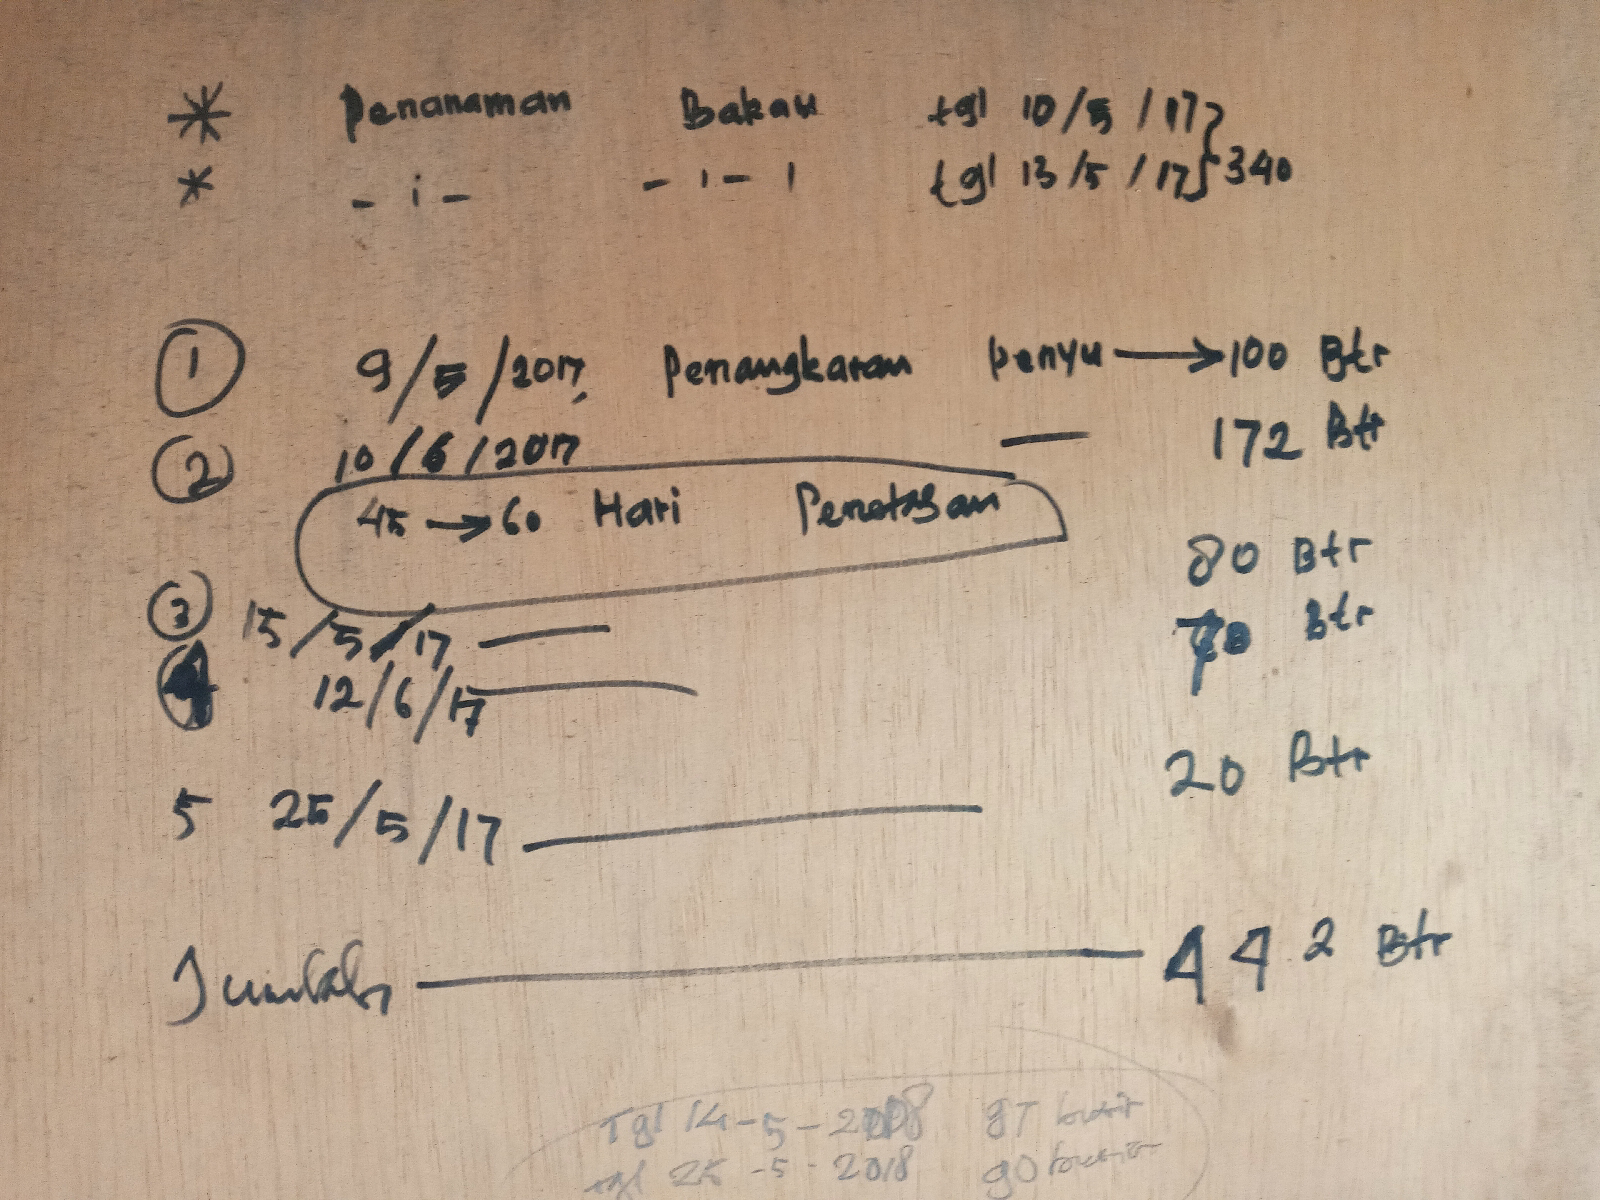 * Penanaman Bakau tgl 10/5/17
* - i - - ı - ı tgl 13/5/17 } 340
1 9/5/2017, Penangkaran penyu → 100 Btr
2 10/6/2017 — 172 Btr
45 → 60 Hari Penetasan
80 Btr
3 15/5/17 —
70 Btr
4 12/6/17 —
20 Btr
5 25/5/17 —
Jumlah — 442 Btr
Tgl 14-5-2018 butir
tgl 25-5-2018 90